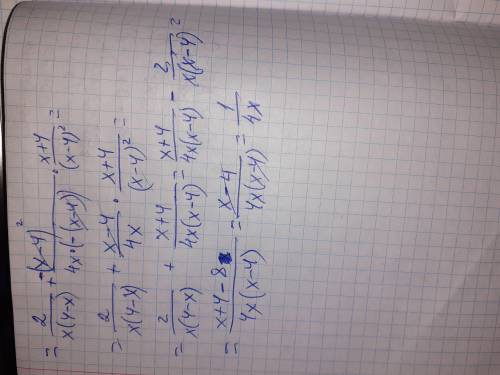 = 2/(x(4-x)) + -(x-4)²/(4x·(-(x-4))) · (x+4)/(x-4)² =
= 2/(x(4-x)) + (x-4)/(4x) · (x+4)/(x-4)² =
= 2/(x(4-x)) + (x+4)/(4x(x-4)) = (x+4)/(4x(x-4)) - 2/(x(x-4)) =
= (x+4-8)/(4x(x-4)) = (x-4)/(4x(x-4)) = 1/(4x)